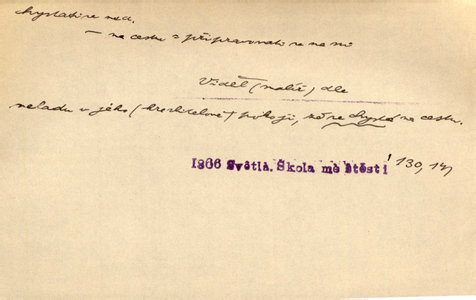 chystati se ned.
— na cestu = připravovati se na ni
Viděl (malíř) dle
neladu v jeho (kreslitelově) pokoji, že se chystá na cestu.
1866 Světlá. Škola mé štěstí 130, 141